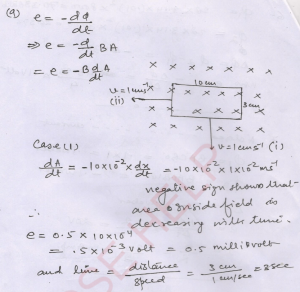 (9) e = -dφ/dt
⇒ e = -d/dt BA
= e = -B dA/dt
× × × × × ×
10cm
v=1cms⁻¹
(ii)
3cm
v=1cms⁻¹ (i)
Case (1)
dA/dt = -10×10⁻² × dx/dt = -10×10⁻² × 1×10⁻² ms⁻¹
negative sign shows that
area inside field is
decreasing with time.
∴
e = 0.5 × 10×10⁻⁴
= .5×10⁻³ volt = 0.5 millivolt
and time = distance/speed = 3cm/1cm/sec = 3sec